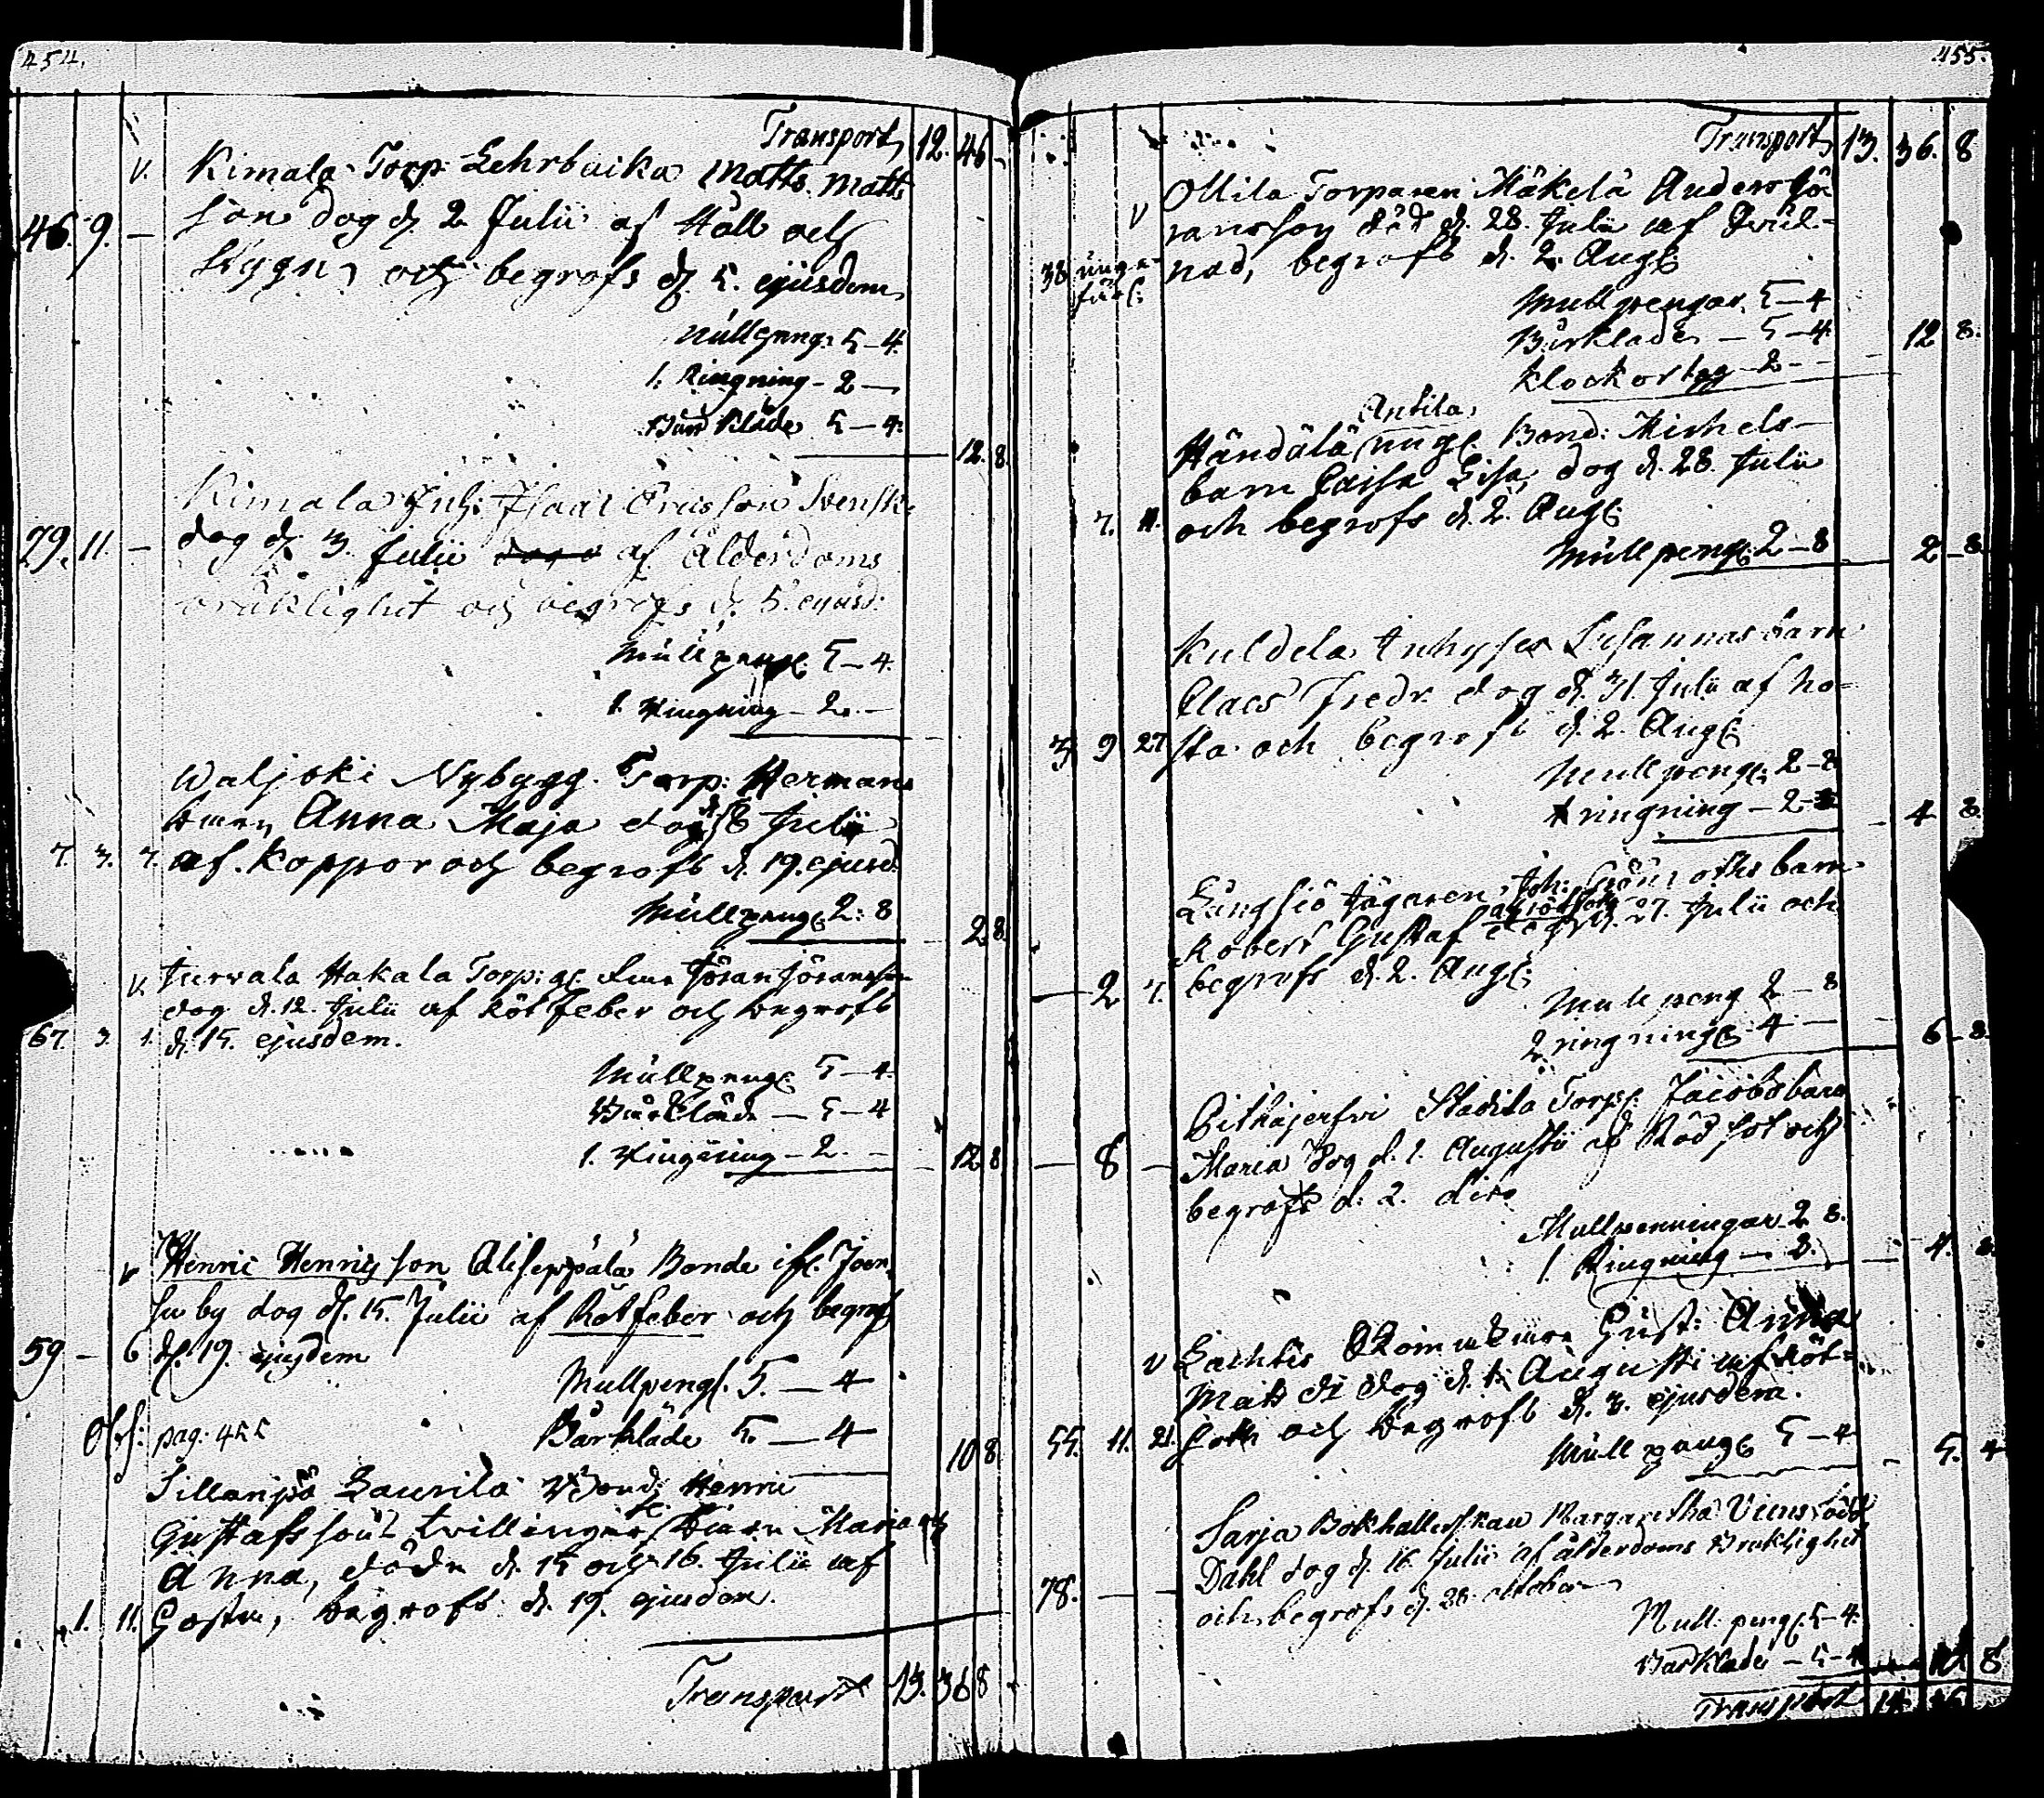 454.
Transport 12. 46 -
v. Kimala Torp. Lehrbacka Matts Matts
46. 9. - son dog d. 2 Julii af Håll och
Stygn och begrofs d. 5. ejusdem
Mullpeng: 5-4.
1. Ringning - 2 -
Bårkläde 5-4.
12. 8.
Kimala Inh: Isaac Ersson Svensk
79. 11. - dog d. 3 Julii af Ålderdoms
bräklighet och begrofs d. 5. ejusd:
Mullpeng. 5-4.
1. Ringning - 2. -
Waljoki Nybygg. Torp: Hermans
barn Anna Maja dog d. Julii
7. 3. 7. af koppor och begrofs d. 19. ejusd.
Mullpeng. 2:8
2. 8.
v. Hakala Torp: Jöran Jöransson
dog d. 12. Julii af Rötfeber och begrofs
67. 3. 1. d. 15. ejusdem.
Mullpeng. 5-4.
Bårkläde - 5-4
1. Ringning - 2. -
12 8
v Henric Henricsson Aliseppälä Bonde ifr. Joen
su by dog d. 15. Julii af Rötfeber och begrofs
59 - 6 d. 19. ejusdem
Mullpeng. 5. - 4
Bårkläde 5. - 4
10 8.
pag. 455
Sillanpä Laurila Bond: Henric
Gustafssons tvillingar barn Maria och
Anna, döde d. 15 och 16. Julii af
1. 11. begrofs d. 19. ejusdem.
Transport 13. 36 8
455.
Transport 13. 36. 8
Ollila Torparen Mäkelä Anders Jö
v ransson död d. 28. Julii af
38 unge- nad, begrofs d. 2. Aug:
fär:
Mullpengar 5-4
Bårkläde - 5-4.
12 8.
Klockor 2 -
Antila
Händälä Bond: Michels
barn Caisa Lisa dog d. 28. Julii
7. 11. och begrofs d. 2. Aug:
Mullpeng: 2-8
2 - 8.
Kuldela Inhyses Susannas barn
Claes Fredr. dog d. 31. Julii af ho-
3 9 27 sta och begrofs d. 2. Aug:
Mullpeng: 2-8
ringning - 2 -
4 8.
Långsjö Jägaren Joh: barn
af rödsot
Robert Gustaf dog d. 27. Julii och
- 2 7. begrofs d. 2. Aug:
Mullpeng 2-8
2 ringning: 4 -
6 - 8.
Pitkäjerfvi Stadila Torp: Jacobs barn
- 8 - Maria dog d. 1. Augusti af Rödsot och
begrofs d: 2. dito
Mullpenningar 2 8.
1. Ringning - 2.
4. 8.
Gust: Anna
v Mats dr dog d. 1. Augusti af Röt-
55. 11. 21. och begrofs d. 3. ejusdem.
Mullpeng: 5-4
5. 4
Sarja Bokhallerskan Margaretha född
78. - - Dahl dog d. 16 Julii af ålderdoms Braklighet
och begrofs d. 28
Mull. peng: 5-4.
Bårkläde - 5-4
8
Transport